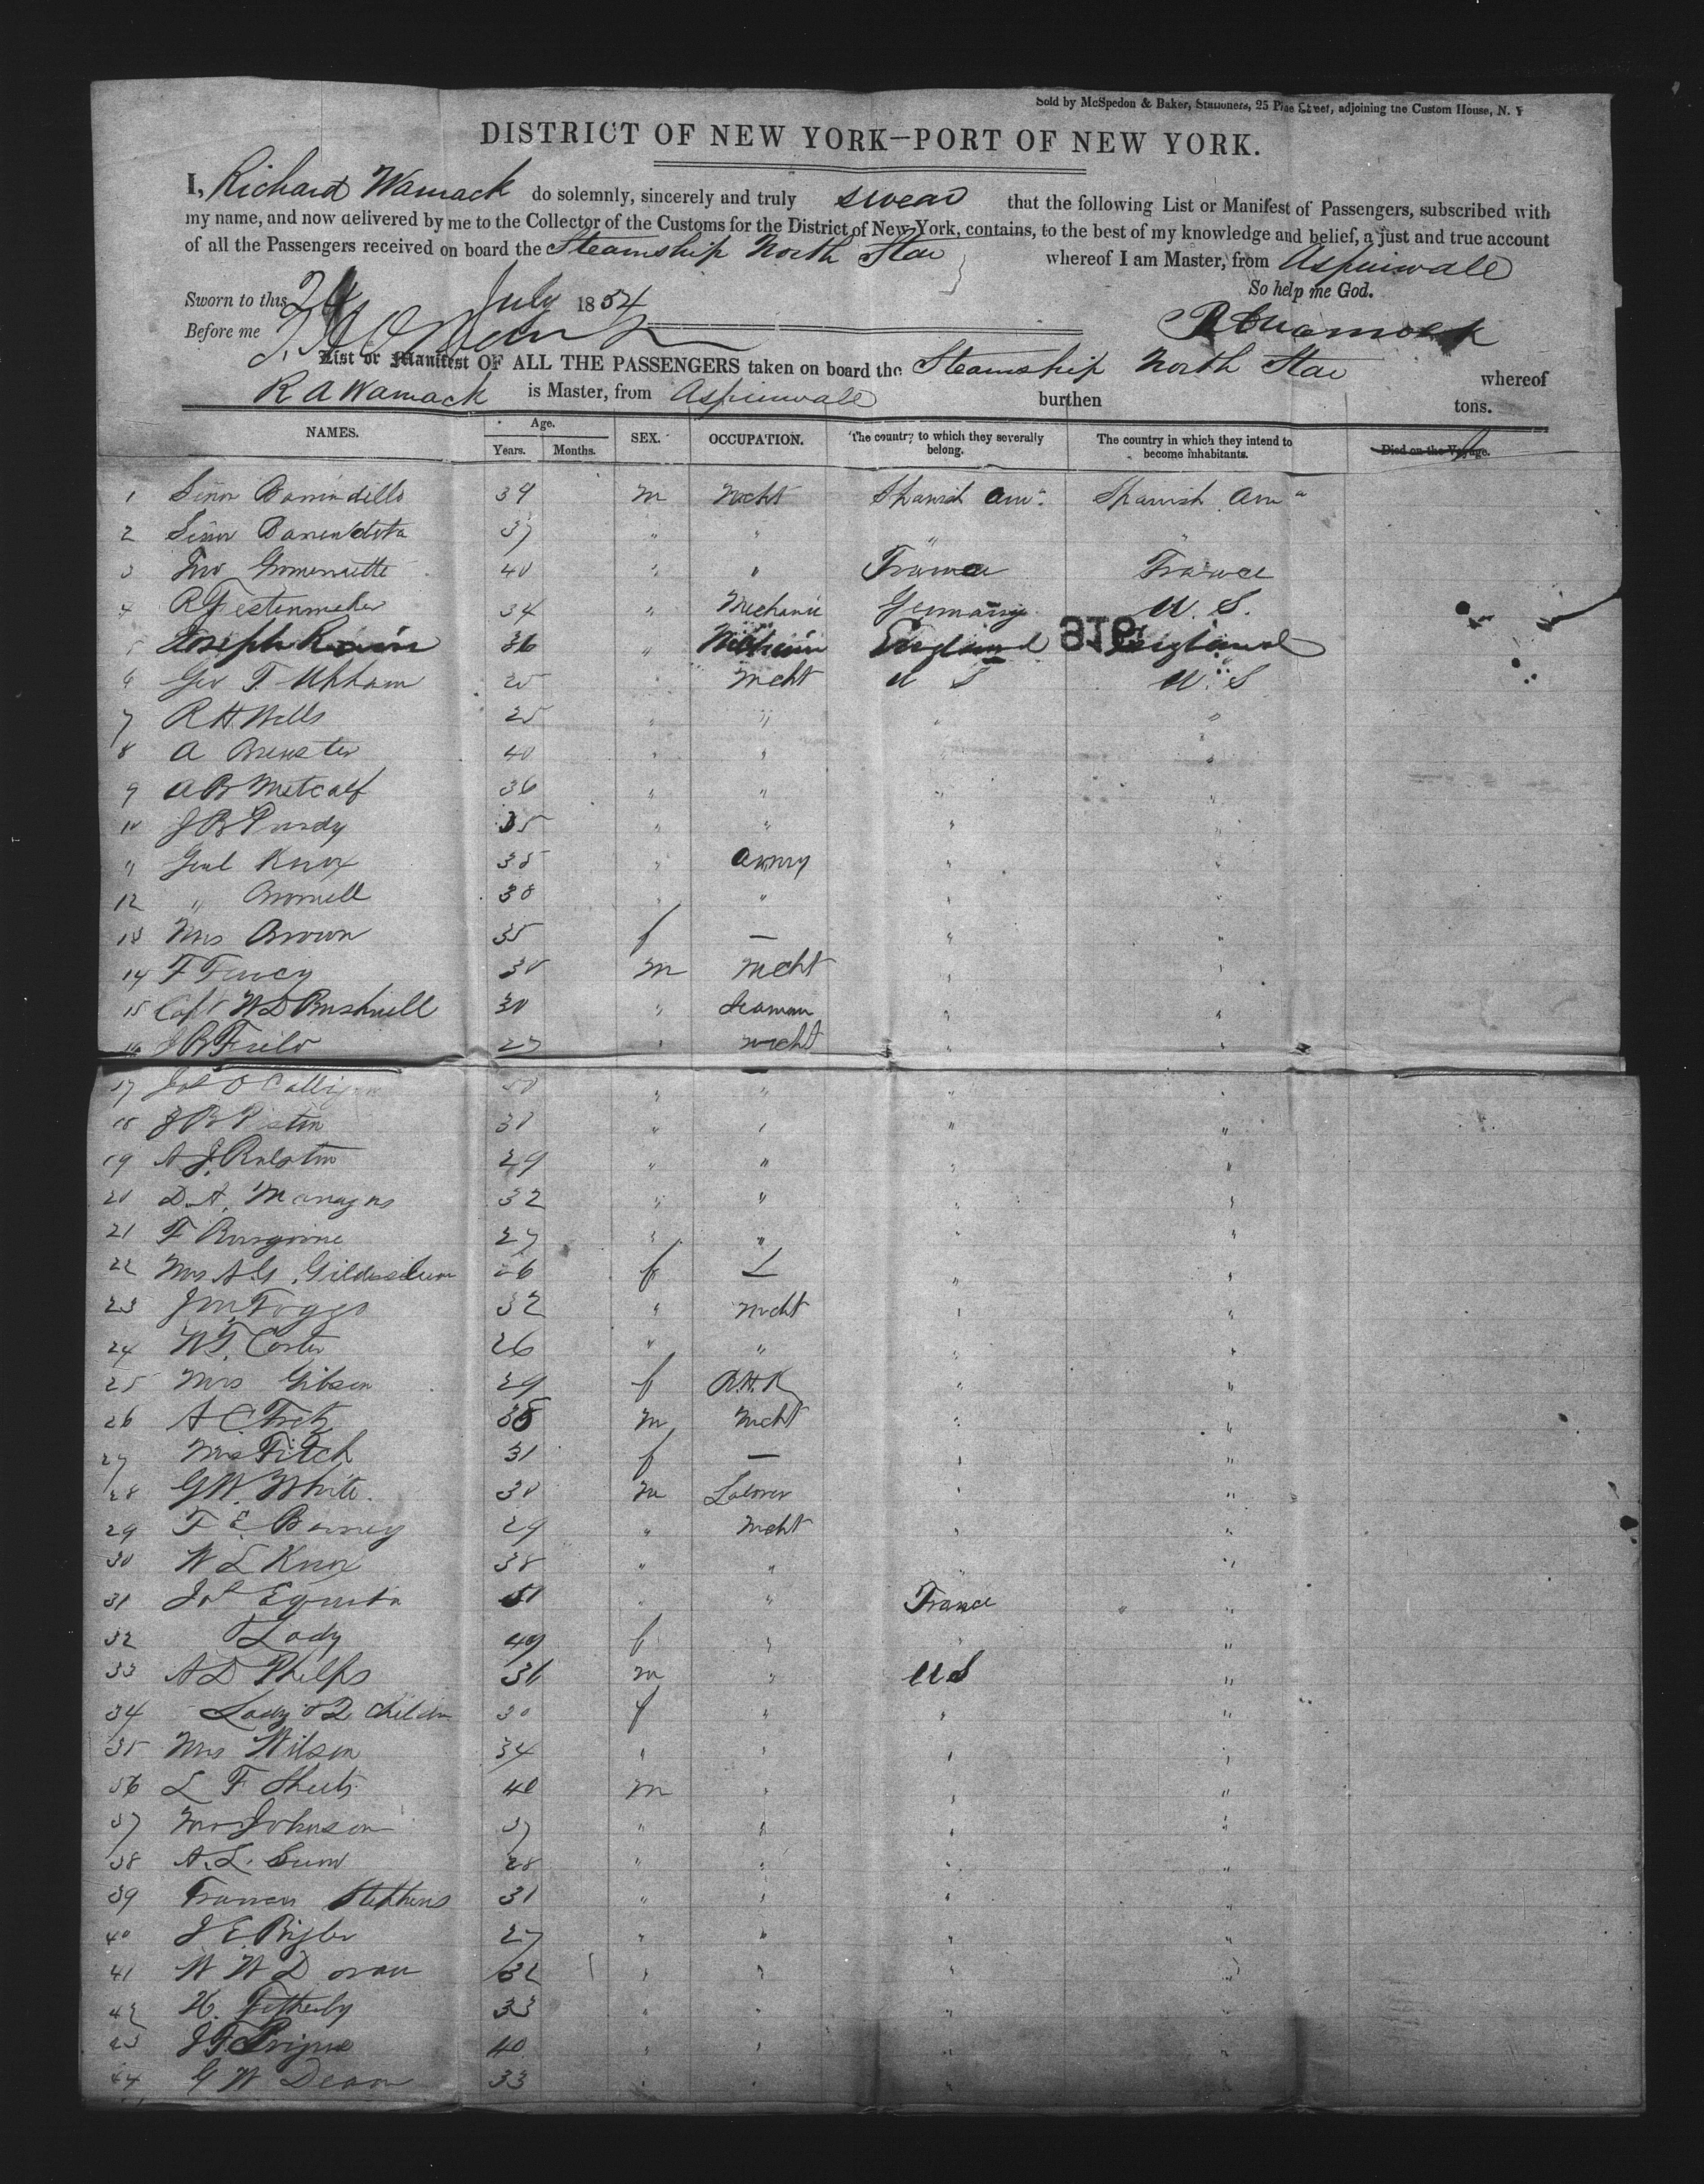 Sold by McSpedon & Baker, Stationers, 25 Pine Street, adjoining the Custom House, N. Y
DISTRICT OF NEW YORK—PORT OF NEW YORK.
I, Richard Warnack do solemnly, sincerely and truly swear that the following List or Manifest of Passengers, subscribed with
my name, and now delivered by me to the Collector of the Customs for the District of New York, contains, to the best of my knowledge and belief, a just and true account
of all the Passengers received on board the Steamship North Star whereof I am Master, from Aspinwall
So help me God.
Sworn to this 24 July 1854
Before me
List or Manifest OF ALL THE PASSENGERS taken on board the Steamship North Star whereof
R A Warnack is Master, from Aspinwall burthen tons.
NAMES. Age. Years. Months. SEX. OCCUPATION. The country to which they severally belong. The country in which they intend to become inhabitants. Died on the Voyage.
1 Senor 39 m Mcht Spanish Am" Spanish Am"
2 Senor 37 " " " "
3 40 " " France France
4 34 " Mechanic Germany U. S.
5 Joseph 36 " England England
6 Geo T Upham 25 " Mcht U S U. S
7 R H Wells 25 " " " "
8 A Brewster 40 " " " "
9 A B Metcalf 36 " " " "
10 J B Purdy 35 " " " "
11 Genl Knox 38 " Army " "
12 " 38 " " " "
13 Mrs Brown 35 f — " "
14 F 30 m Mcht " "
15 Capt W D Bushnell 30 " Seaman " "
16 J B Field 27 " Mcht " "
17 " " " "
18 J B 31 " " " "
19 A J Ralston 29 " " " "
20 D. A. 32 " " " "
21 F 27 " " " "
22 Mrs A G 26 f — " "
23 32 " Mcht " "
24 W T. 26 " " " "
25 Mrs Gibson 29 f " "
26 A C 38 m Mcht " "
27 Mrs Fitch 31 f — " "
28 G W. White 30 m Laborer " "
29 F E Barney 29 " Mcht " "
30 W L Knox 38 " " " "
31 51 " " France "
32 Lady 49 f " " "
33 A D Phelps 36 m " U S "
34 Lady & 2 Childn 30 f " " "
35 Mrs Wilson 34 " " " "
36 L F Sheets 40 m " " "
37 Johnson 37 " " " "
38 A. L. 28 " " " "
39 Frances Stephens 31 " " " "
40 J E Bigler 27 " " " "
41 W W Doran 32 " " " "
42 33 " " " "
43 40 " " " "
44 G W Dean 33 " " " "